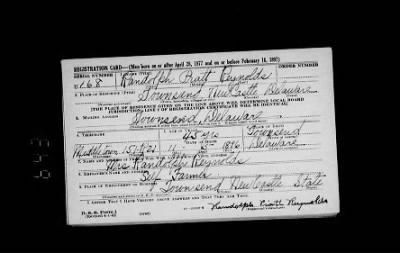 REGISTRATION CARD—(Men born on or after April 28, 1877 and on or before February 16, 1897)
SERIAL NUMBER
ORDER NUMBER
U 168 Randolph Pratt Reynolds
2. PLACE OF RESIDENCE (Print)
Townsend New Castle Delaware
[THE PLACE OF RESIDENCE GIVEN ON THE LINE ABOVE WILL DETERMINE LOCAL BOARD
JURISDICTION; LINE 2 OF REGISTRATION CERTIFICATE WILL BE IDENTICAL]
3. MAILING ADDRESS
Townsend, Delaware
4. TELEPHONE
45 yrs Townsend
DATE OF BIRTH
Middletown 1896 Delaware
Mrs. Randolph Reynolds
8. EMPLOYER'S NAME AND ADDRESS
Self Farmer
9. PLACE OF EMPLOYMENT OR BUSINESS
Townsend New Castle State
I AFFIRM THAT I HAVE VERIFIED ABOVE ANSWERS AND THAT THEY ARE TRUE.
D. S. S. Form 1
Randolph Pratt Reynolds
643